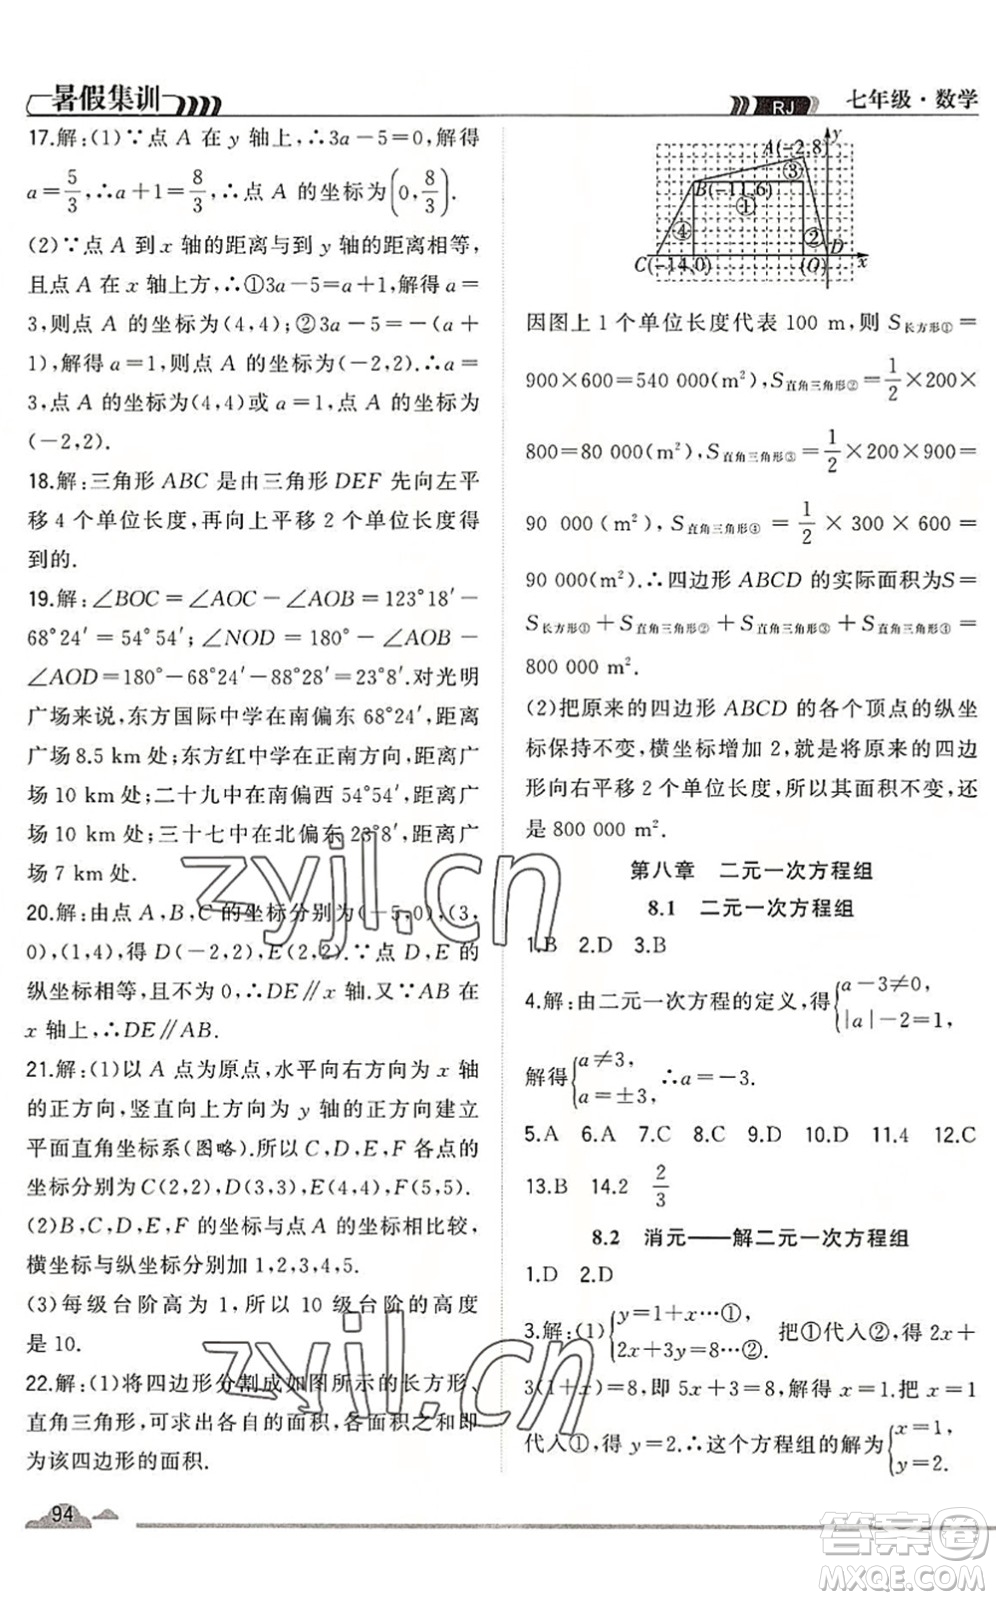 暑假集训
RJ 七年级·数学
17.解:(1)∵点 A 在 y 轴上,∴3a－5=0,解得
a=5/3,∴a＋1=8/3,∴点 A 的坐标为(0,8/3).
(2)∵点 A 到 x 轴的距离与到 y 轴的距离相等,
且点 A 在 x 轴上方,∴①3a－5=a＋1,解得 a=
3,则点 A 的坐标为(4,4);②3a－5=－(a＋
1),解得 a=1,则点 A 的坐标为(－2,2).∴a=
3,点 A 的坐标为(4,4)或 a=1,点 A 的坐标为
(－2,2).
18.解:三角形 ABC 是由三角形 DEF 先向左平
移 4 个单位长度,再向上平移 2 个单位长度得
到的.
19.解:∠BOC=∠AOC－∠AOB=123°18′－
68°24′=54°54′;∠NOD=180°－∠AOB－
∠AOD=180°－68°24′－88°28′=23°8′.对光明
广场来说,东方国际中学在南偏东 68°24′,距离
广场 8.5 km 处;东方红中学在正南方向,距离广
场 10 km 处;二十九中在南偏西 54°54′,距离广
场 10 km 处;三十七中在北偏东 23°8′,距离广
场 7 km 处.
20.解:由点 A,B,C 的坐标分别为(－5,0),(3,
0),(1,4),得 D(－2,2),E(2,2).∵点 D,E 的
纵坐标相等,且不为 0,∴DE∥x 轴.又∵AB 在
x 轴上,∴DE∥AB.
21.解:(1)以 A 点为原点,水平向右方向为 x 轴
的正方向,竖直向上方向为 y 轴的正方向建立
平面直角坐标系(图略).所以 C,D,E,F 各点的
坐标分别为C(2,2),D(3,3),E(4,4),F(5,5).
(2)B,C,D,E,F 的坐标与点 A 的坐标相比较,
横坐标与纵坐标分别加 1,2,3,4,5.
(3)每级台阶高为 1,所以 10 级台阶的高度
是 10.
22.解:(1)将四边形分割成如图所示的长方形、
直角三角形,可求出各自的面积,各面积之和即
为该四边形的面积.
94
y
A(－2,8)
③
B(－11,6)
①
④ ② D
C(－14,0) (O) x
因图上 1 个单位长度代表 100 m,则 S长方形①=
900×600=540 000(m²),S直角三角形②=1/2×200×
800=80 000(m²),S直角三角形③=1/2×200×900=
90 000(m²),S直角三角形④=1/2×300×600=
90 000(m²).∴四边形 ABCD 的实际面积为S=
S长方形①＋S直角三角形②＋S直角三角形③＋S直角三角形④=
800 000 m².
(2)把原来的四边形 ABCD 的各个顶点的纵坐
标保持不变,横坐标增加 2,就是将原来的四边
形向右平移 2 个单位长度,所以其面积不变,还
是 800 000 m².
第八章 二元一次方程组
8.1 二元一次方程组
1.B 2.D 3.B
4.解:由二元一次方程的定义,得{a－3≠0, |a|－2=1,
解得{a≠3, a=±3, ∴a=－3.
5.A 6.A 7.C 8.C 9.D 10.D 11.4 12.C
13.B 14.2 2/3
8.2 消元——解二元一次方程组
1.D 2.D
3.解:(1){y=1＋x…①, 2x＋3y=8…②. 把①代入②,得 2x＋
3(1＋x)=8,即 5x＋3=8,解得 x=1.把 x=1
代入①,得 y=2.∴这个方程组的解为{x=1, y=2.
zyjl.cn
zyjl.cn
答案圈
MXQE.COM